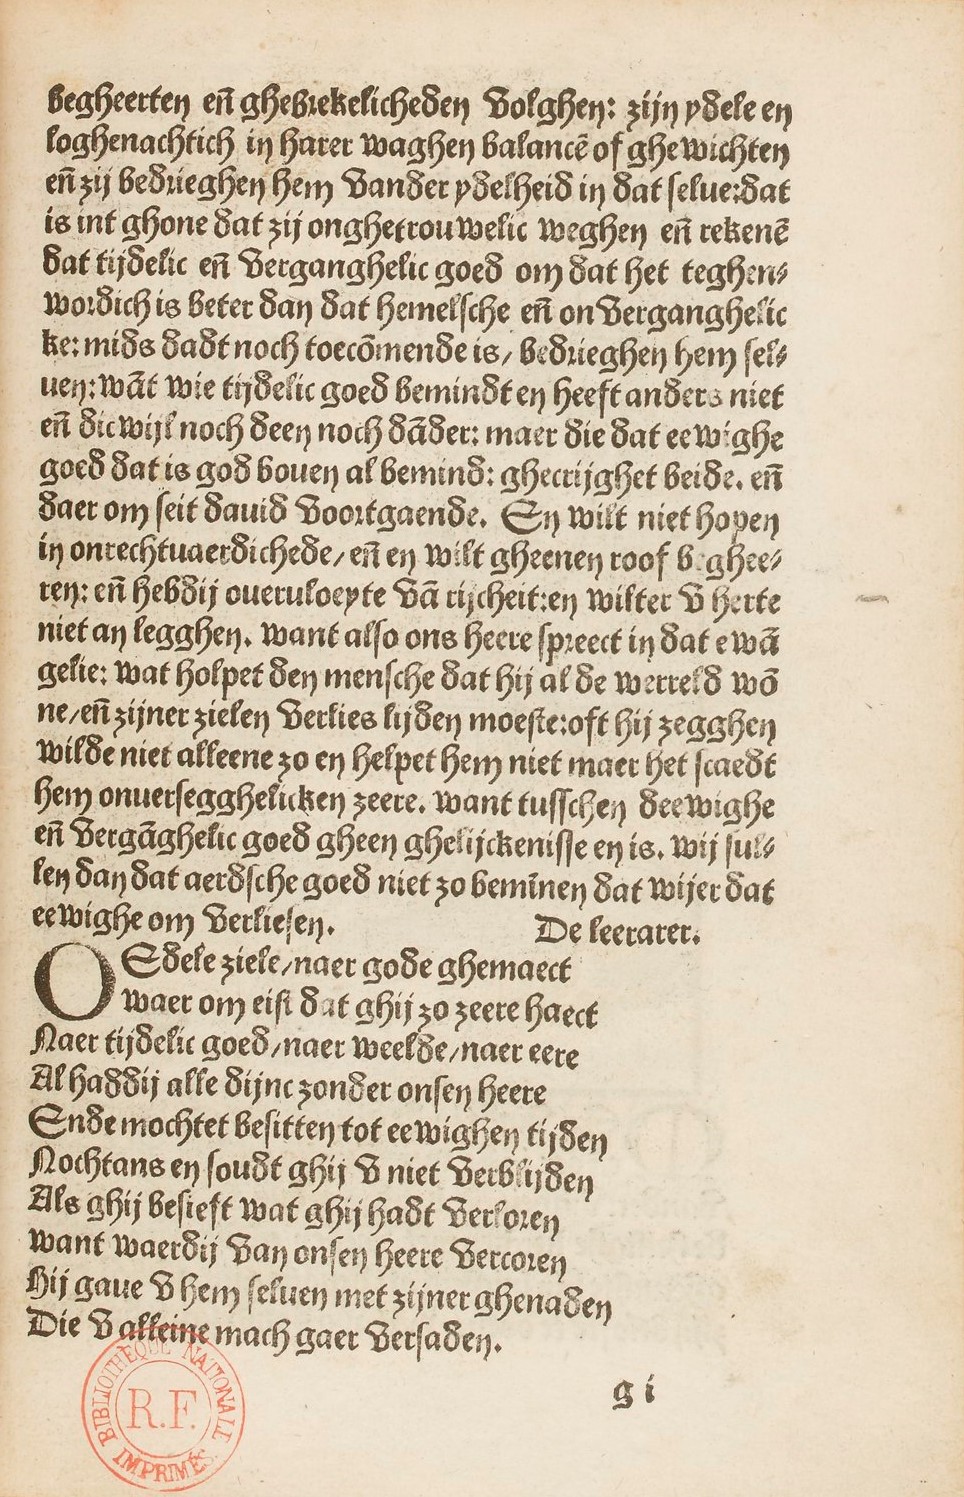 begheerten en̄ ghebrekelicheden volghen: zijn ydele en
loghenachtich in harer waghen balancē of ghewichten
en̄ zij bedrieghen hem vander ydelheid in dat selue:dat
is int ghone dat zij onghetrouwelic weghen en̄ rekenē
dat tijdelic en̄ verganghelic goed om dat het teghen⸗
wordich is beter dan dat hemelsche en̄ onverganghelic
ke: mids dadt noch toecōmende is/ bedrieghen hem sel⸗
uen: wāt wie tijdelic goed bemindt en heeft anders niet
en̄ dicwijl noch deen noch dāder: maer die dat eewighe
goed dat is god bouen al bemind: ghecrijghet beide. en̄
daer om seit dauid voortgaende. En wilt niet hopen
in onrechtuaerdichede/ en̄ en wilt gheenen roof beghee⸗
ren: en̄ hebdij oueruloeyte vā rijcheit:en wilter v herte
niet an legghen. want also ons heere spreect in dat ewā
gelie: wat holpet den mensche dat hij al de werreld wō
ne/en̄ zijner zielen verlies lijden moeste:oft hij zegghen
wilde niet alleene zo en helpet hem niet maer het scaedt
hem onuersegghelicken zeere. want tusschen deewighe
en̄ vergāghelic goed gheen ghelijckenisse en is. wij sul⸗
len dan dat aerdsche goed niet zo bemīnen dat wijer dat
eewighe om verliesen. De leerarer.
O Edele ziele/naer gode ghemaect
waer om eist dat ghij zo zeere haect
Naer tijdelic goed/naer weelde/naer eere
Al haddij alle dijnc zonder onsen heere
Ende mochtet besitten tot eewighen tijden
Nochtans en soudt ghij v niet verblijden
Als ghij besieft wat ghij hadt verloren
want waerdij van onsen heere vercoren
Hij gaue v hem seluen met zijner ghenaden
Die v alleine mach gaer versaden.
g i
BIBLIOTHÈQUE NATIONALE
R.F.
IMPRIMÉS